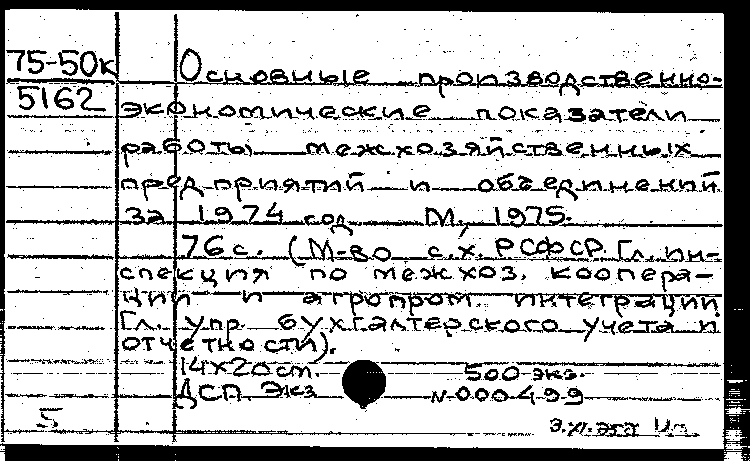 75-50к Основные производственно-
5162 экономические показатели
работы межхозяйственных
предприятий и объединений
за 1974 год М., 1975.
76 с. (М-во с.х. РСФСР. Гл. ин-
спекция по межхоз. коопера-
ции и агропром. интеграции
Гл. упр. бухгалтерского учета и
отчетности).
14х20 см. 500 экз.
ДСП. Экз N 000499
5